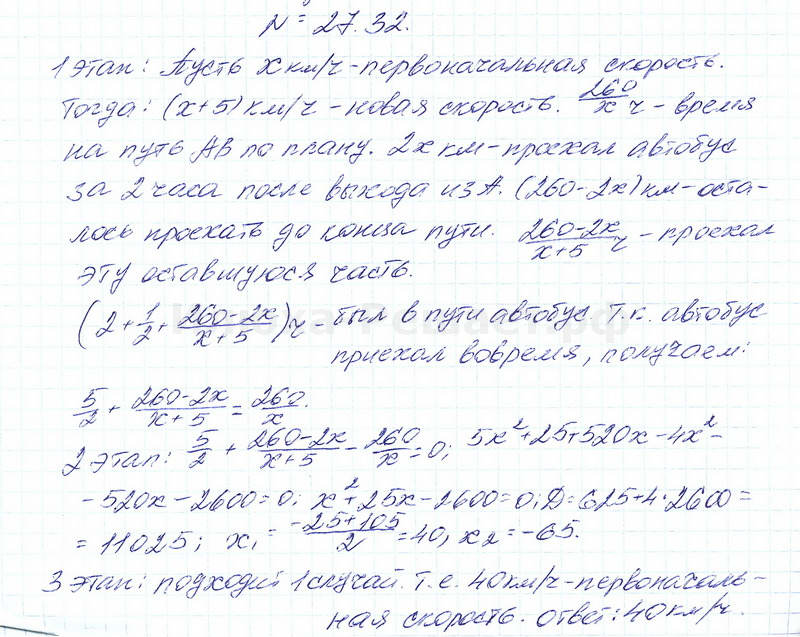 № 27.32.
1 этап: Пусть x км/ч - первоначальная скорость.
Тогда: (x+5) км/ч - новая скорость. 260/x ч - время
на путь AB по плану. 2x км - проехал автобус
за 2 часа после выхода из A. (260-2x) км - оста-
лось проехать до конца пути. (260-2x)/(x+5) ч - проехал
эту оставшуюся часть.
(2 + 1/2 + (260-2x)/(x+5)) ч - был в пути автобус т.к. автобус
приехал вовремя, получаем:
5/2 + (260-2x)/(x+5) = 260/x.
2 этап: 5/2 + (260-2x)/(x+5) - 260/x = 0; 5x²+25+520x-4x²-
-520x-2600=0; x²+25x-2600=0; D=625+4·2600=
= 11025; x₁ = (-25+105)/2 = 40, x₂ = -65.
3 этап: подходит 1 случай. т.е. 40 км/ч - первоначаль-
ная скорость. ответ: 40 км/ч.